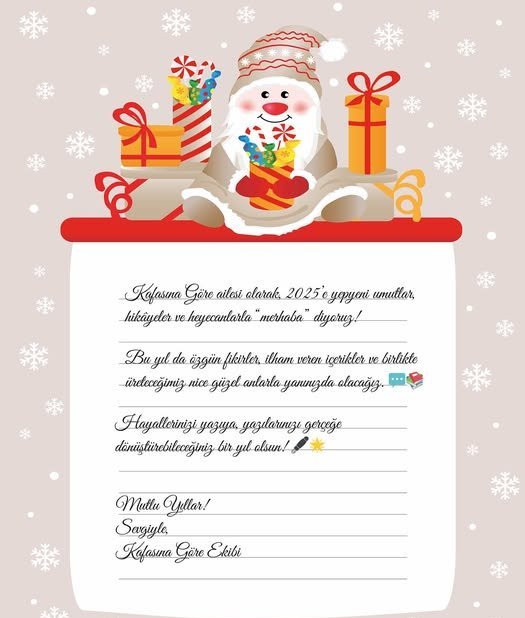 Kafasına Göre ailesi olarak, 2025'e yepyeni umutlar,
hikâyeler ve heyecanlarla "merhaba" diyoruz!
Bu yıl da özgün fikirler, ilham veren içerikler ve birlikte
üreteceğimiz nice güzel anlarla yanınızda olacağız. 💬📚
Hayallerinizi yazıya, yazılarınızı gerçeğe
dönüştürebileceğiniz bir yıl olsun! 🖋️🌟
Mutlu Yıllar!
Sevgiyle,
Kafasına Göre Ekibi